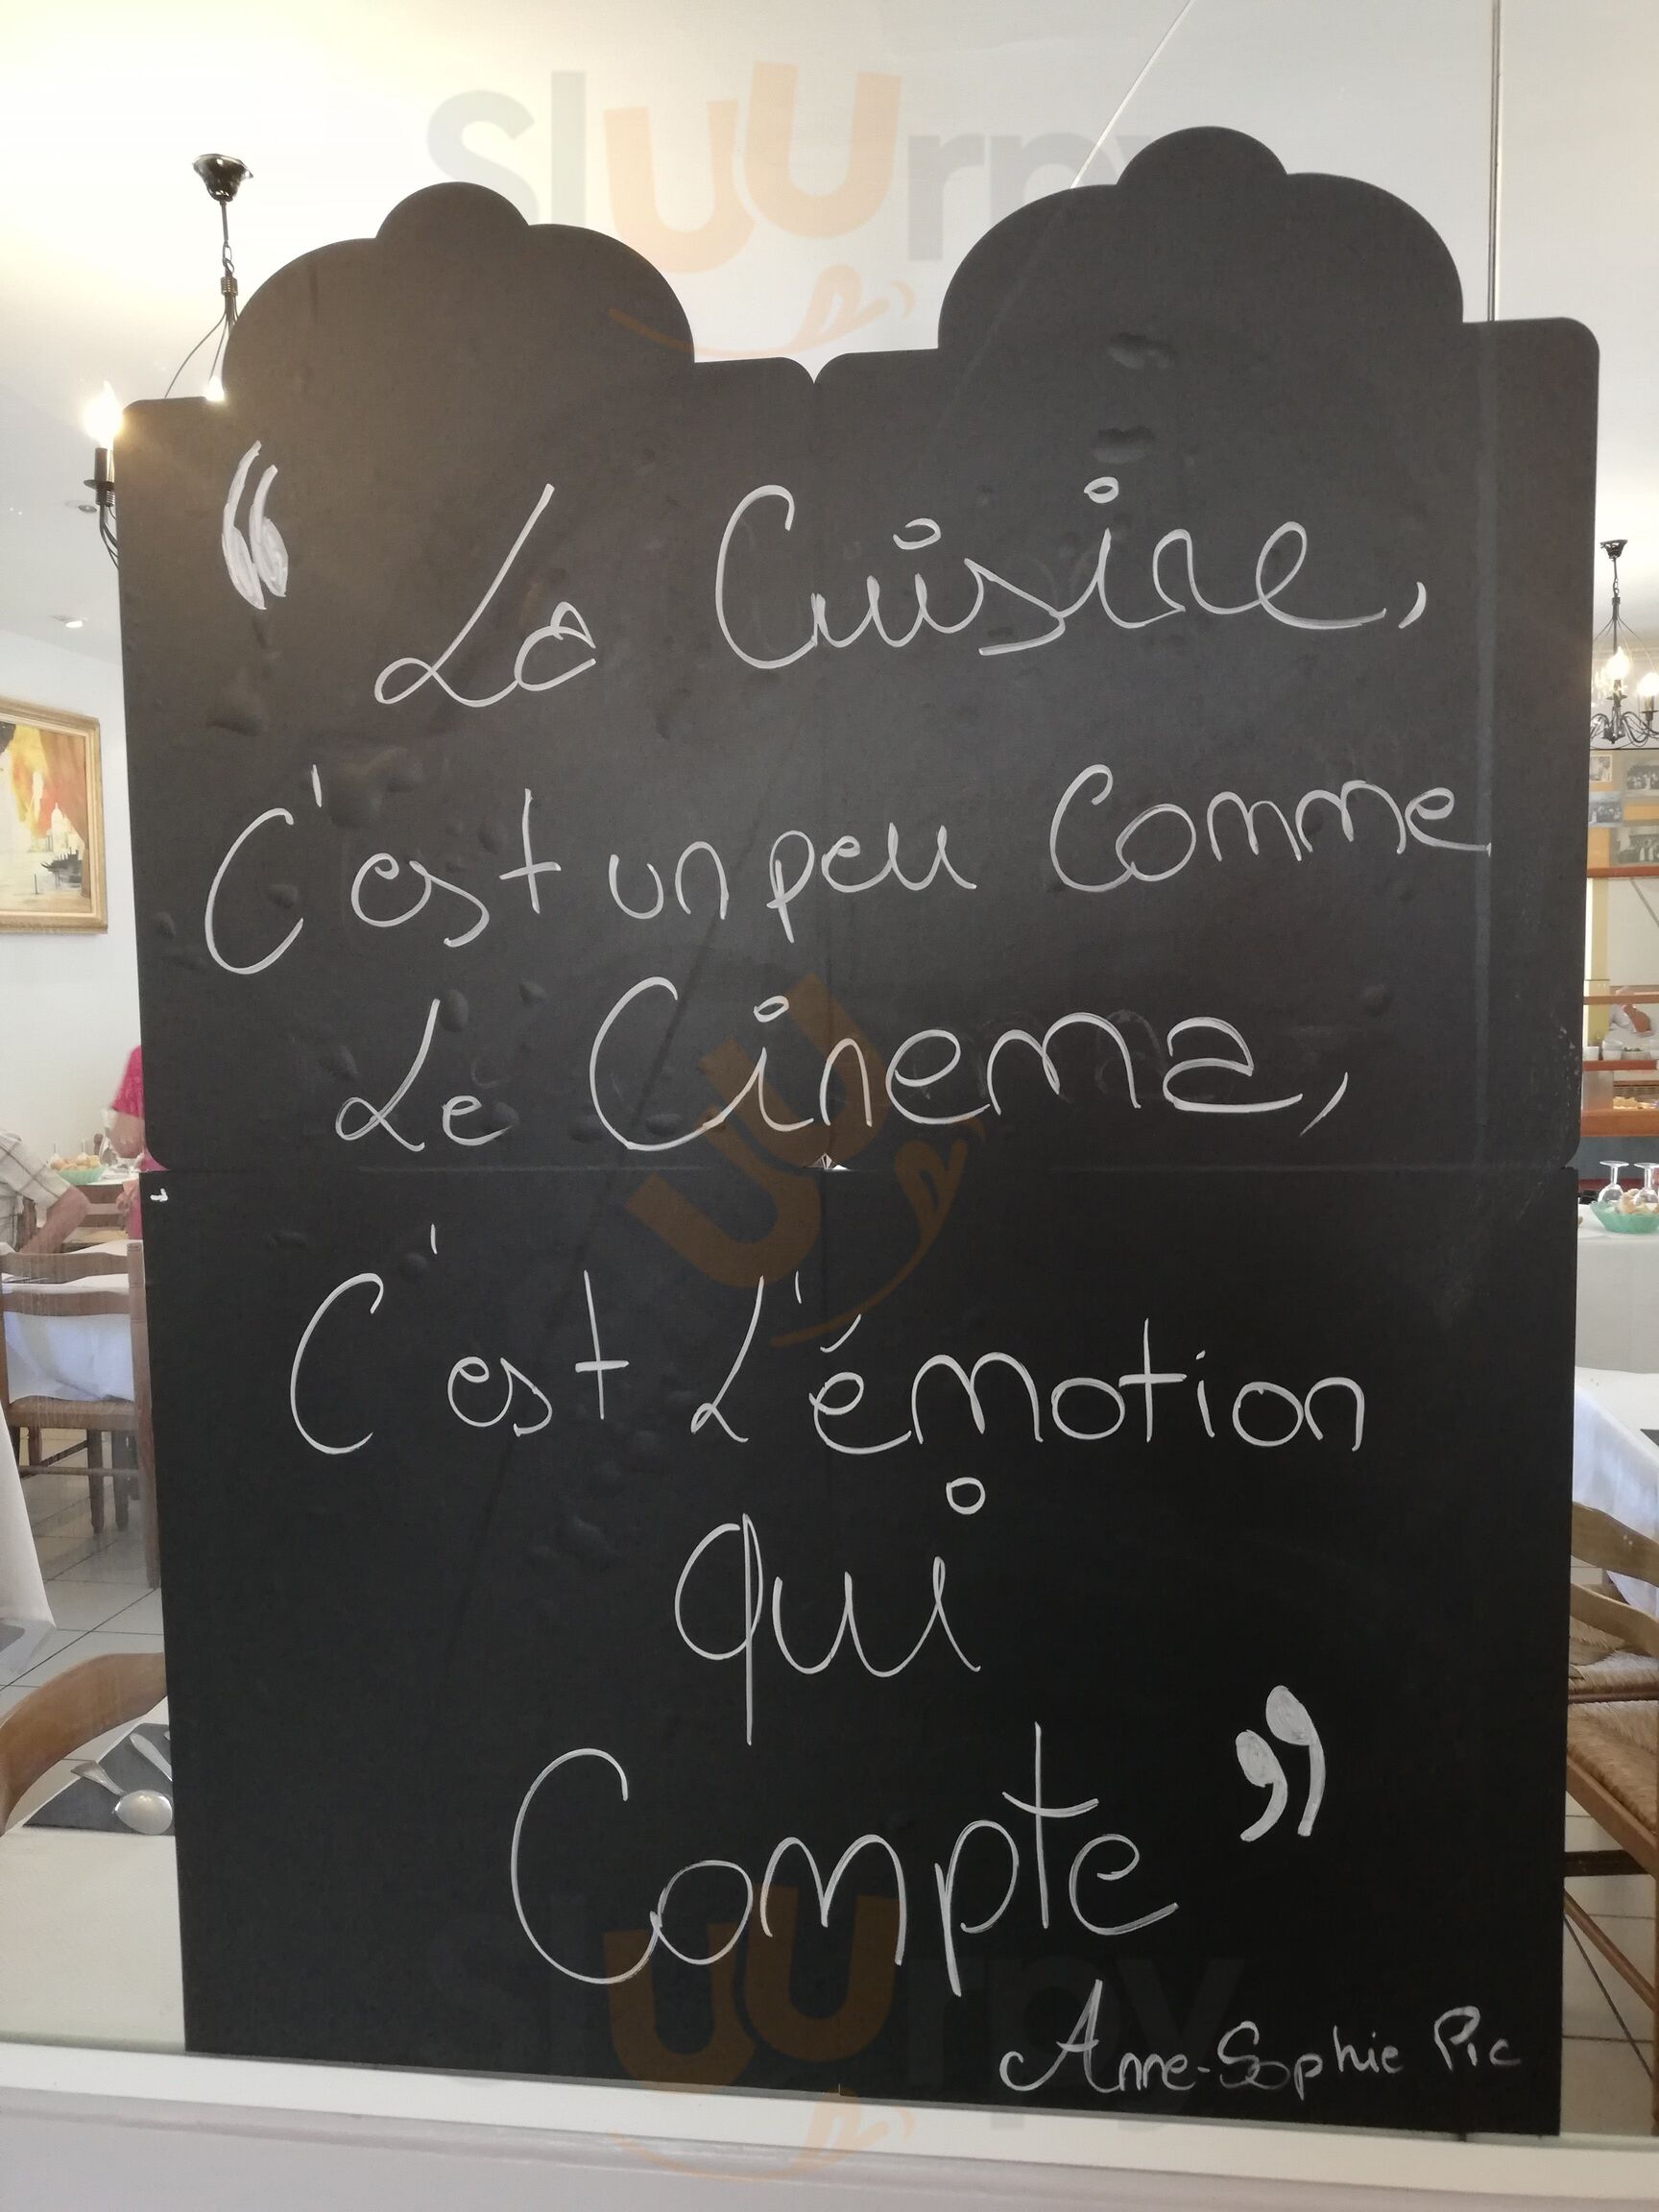 sluurpy
“ La Cuisine,
C'est un peu Comme
Le Cinema,
C'est L'émotion
qui
Compte ”
sluurpy
Anne-Sophie Pic